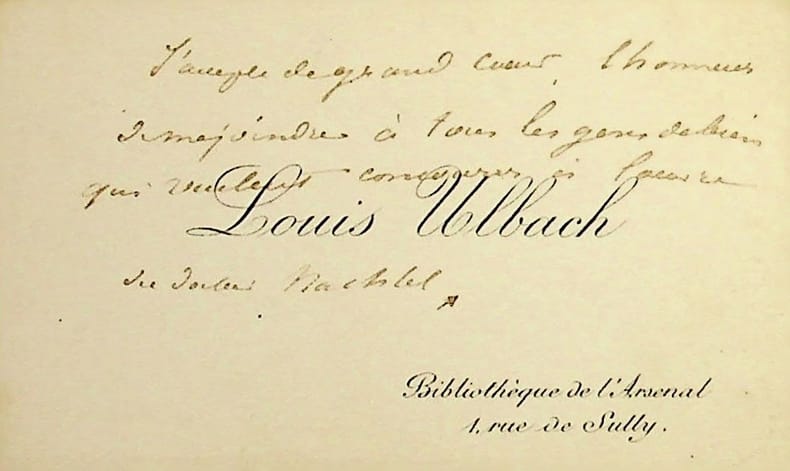 J'accepte de grand cœur, l'honneur
de m'adjoindre à tous les gens de bien
qui veulent concourir à l'œuvre
Louis Ulbach
du docteur
Bibliothèque de l'Arsenal
1, rue de Sully.